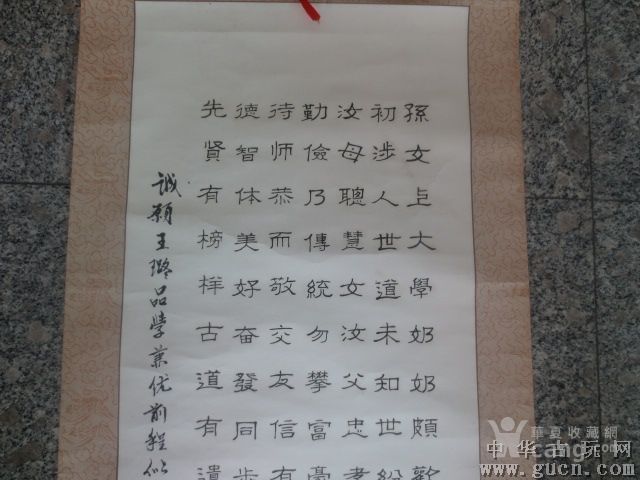 孫女上大學奶奶頗歡
初涉人世道未知世紛
汝母聰慧女汝父忠孝
勤儉乃傳統勿攀富豪
待师恭而敬交友信有
德智体美好奋發同步
先贤有榜样古道有遺
诚願王璐品学業优前程似
華夏收藏網
cang.com
中华古玩网
www.gucn.com